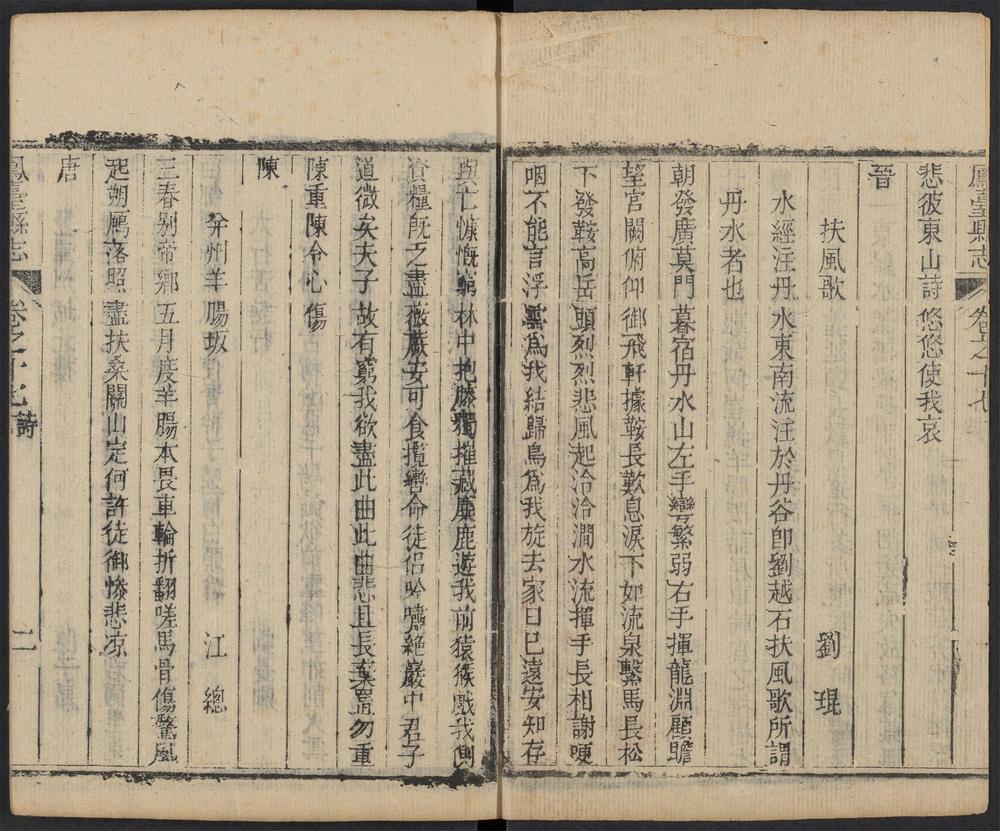 鳳臺縣志　卷之十七
悲彼東山詩悠悠使我哀
晉
扶風歌　劉琨
水經注丹水東南流注於丹谷卽劉越石扶風歌所謂
丹水者也
朝發廣莫門暮宿丹水山左手彎繁弱右手揮龍淵顧瞻
望宮闕俯仰御飛軒據鞍長歎息淚下如流泉繫馬長松
下發鞍高岳頭烈烈悲風起泠泠澗水流揮手長相謝哽
咽不能言浮雲爲我結歸鳥爲我旋去家日已遠安知存
與亡慷慨窮林中抱膝獨摧藏麋鹿遊我前猿猴戲我側
資糧旣乏盡薇蕨安可食攬轡命徒侶吟嘯絶巖中君子
道微矣夫子故有窮我欲盡此曲此曲悲且長棄置勿重
陳重陳令心傷
陳
幷州羊腸坂　江總
三春别帝鄉五月度羊腸本畏車輪折翻嗟馬骨傷驚風
起朔鴈落照盡扶桑關山定何許徒御慘悲凉
唐
鳳臺縣志　卷之十七　詩　二